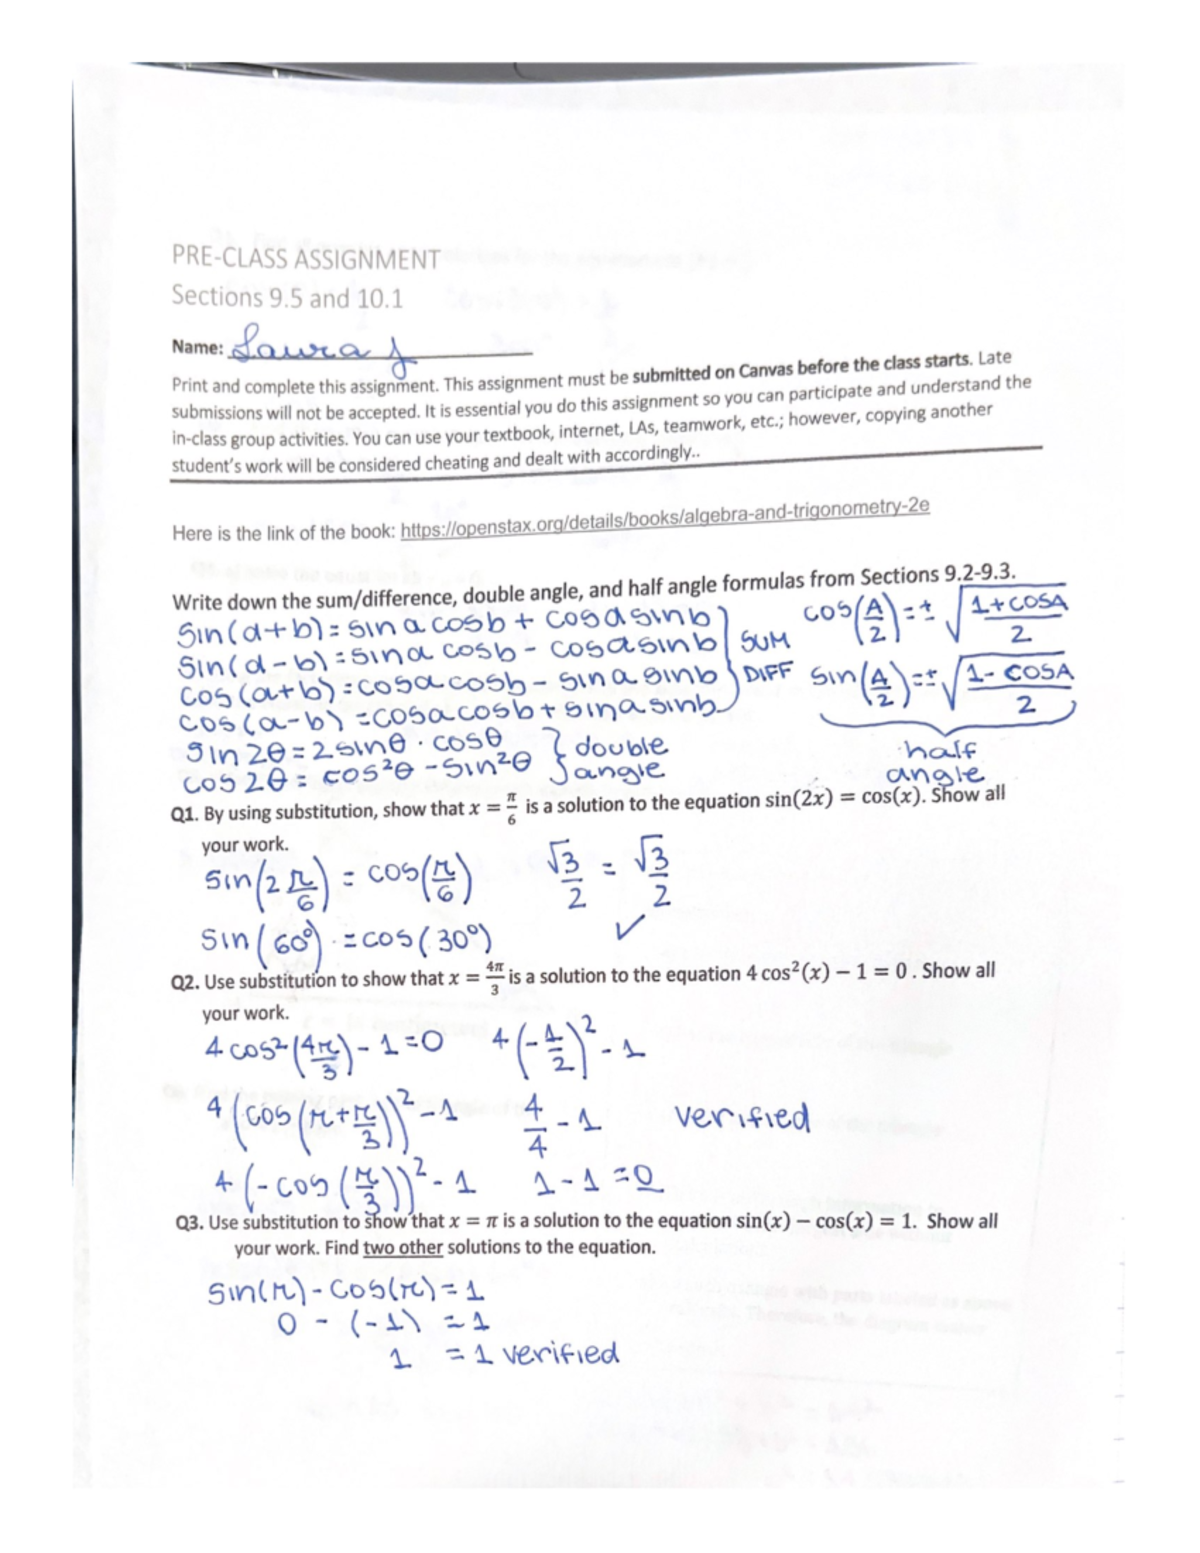 PRE-CLASS ASSIGNMENT
Sections 9.5 and 10.1
Name: Laura J
Print and complete this assignment. This assignment must be submitted on Canvas before the class starts. Late
submissions will not be accepted. It is essential you do this assignment so you can participate and understand the
in-class group activities. You can use your textbook, internet, LAs, teamwork, etc.; however, copying another
student's work will be considered cheating and dealt with accordingly..
Here is the link of the book: https://openstax.org/details/books/algebra-and-trigonometry-2e
Write down the sum/difference, double angle, and half angle formulas from Sections 9.2-9.3.
sin(a+b)=sin a cosb + cosa sinb
sin(a-b)=sina cosb - cosa sinb
cos(a+b)=cosa cosb - sina sinb
cos(a-b)=cosa cosb + sina sinb
SUM
DIFF
cos(A/2)=± √(1+cosA/2)
sin(A/2)=± √(1-cosA/2)
half
angle
sin 2θ = 2 sinθ · cosθ
cos 2θ = cos²θ - sin²θ
double
angle
Q1. By using substitution, show that x = π/6 is a solution to the equation sin(2x) = cos(x). Show all
your work.
sin(2 π/6) = cos(π/6)
sin(60°) = cos(30°)
√3/2 = √3/2
✓
Q2. Use substitution to show that x = 4π/3 is a solution to the equation 4 cos²(x) − 1 = 0 . Show all
your work.
4 cos²(4π/3) - 1 = 0
4(cos(π+π/3))² - 1
4(-cos(π/3))² - 1
4(-1/2)² - 1
4/4 - 1
1 - 1 = 0
verified
Q3. Use substitution to show that x = π is a solution to the equation sin(x) − cos(x) = 1. Show all
your work. Find two other solutions to the equation.
sin(π) - cos(π) = 1
0 - (-1) = 1
1 = 1 verified